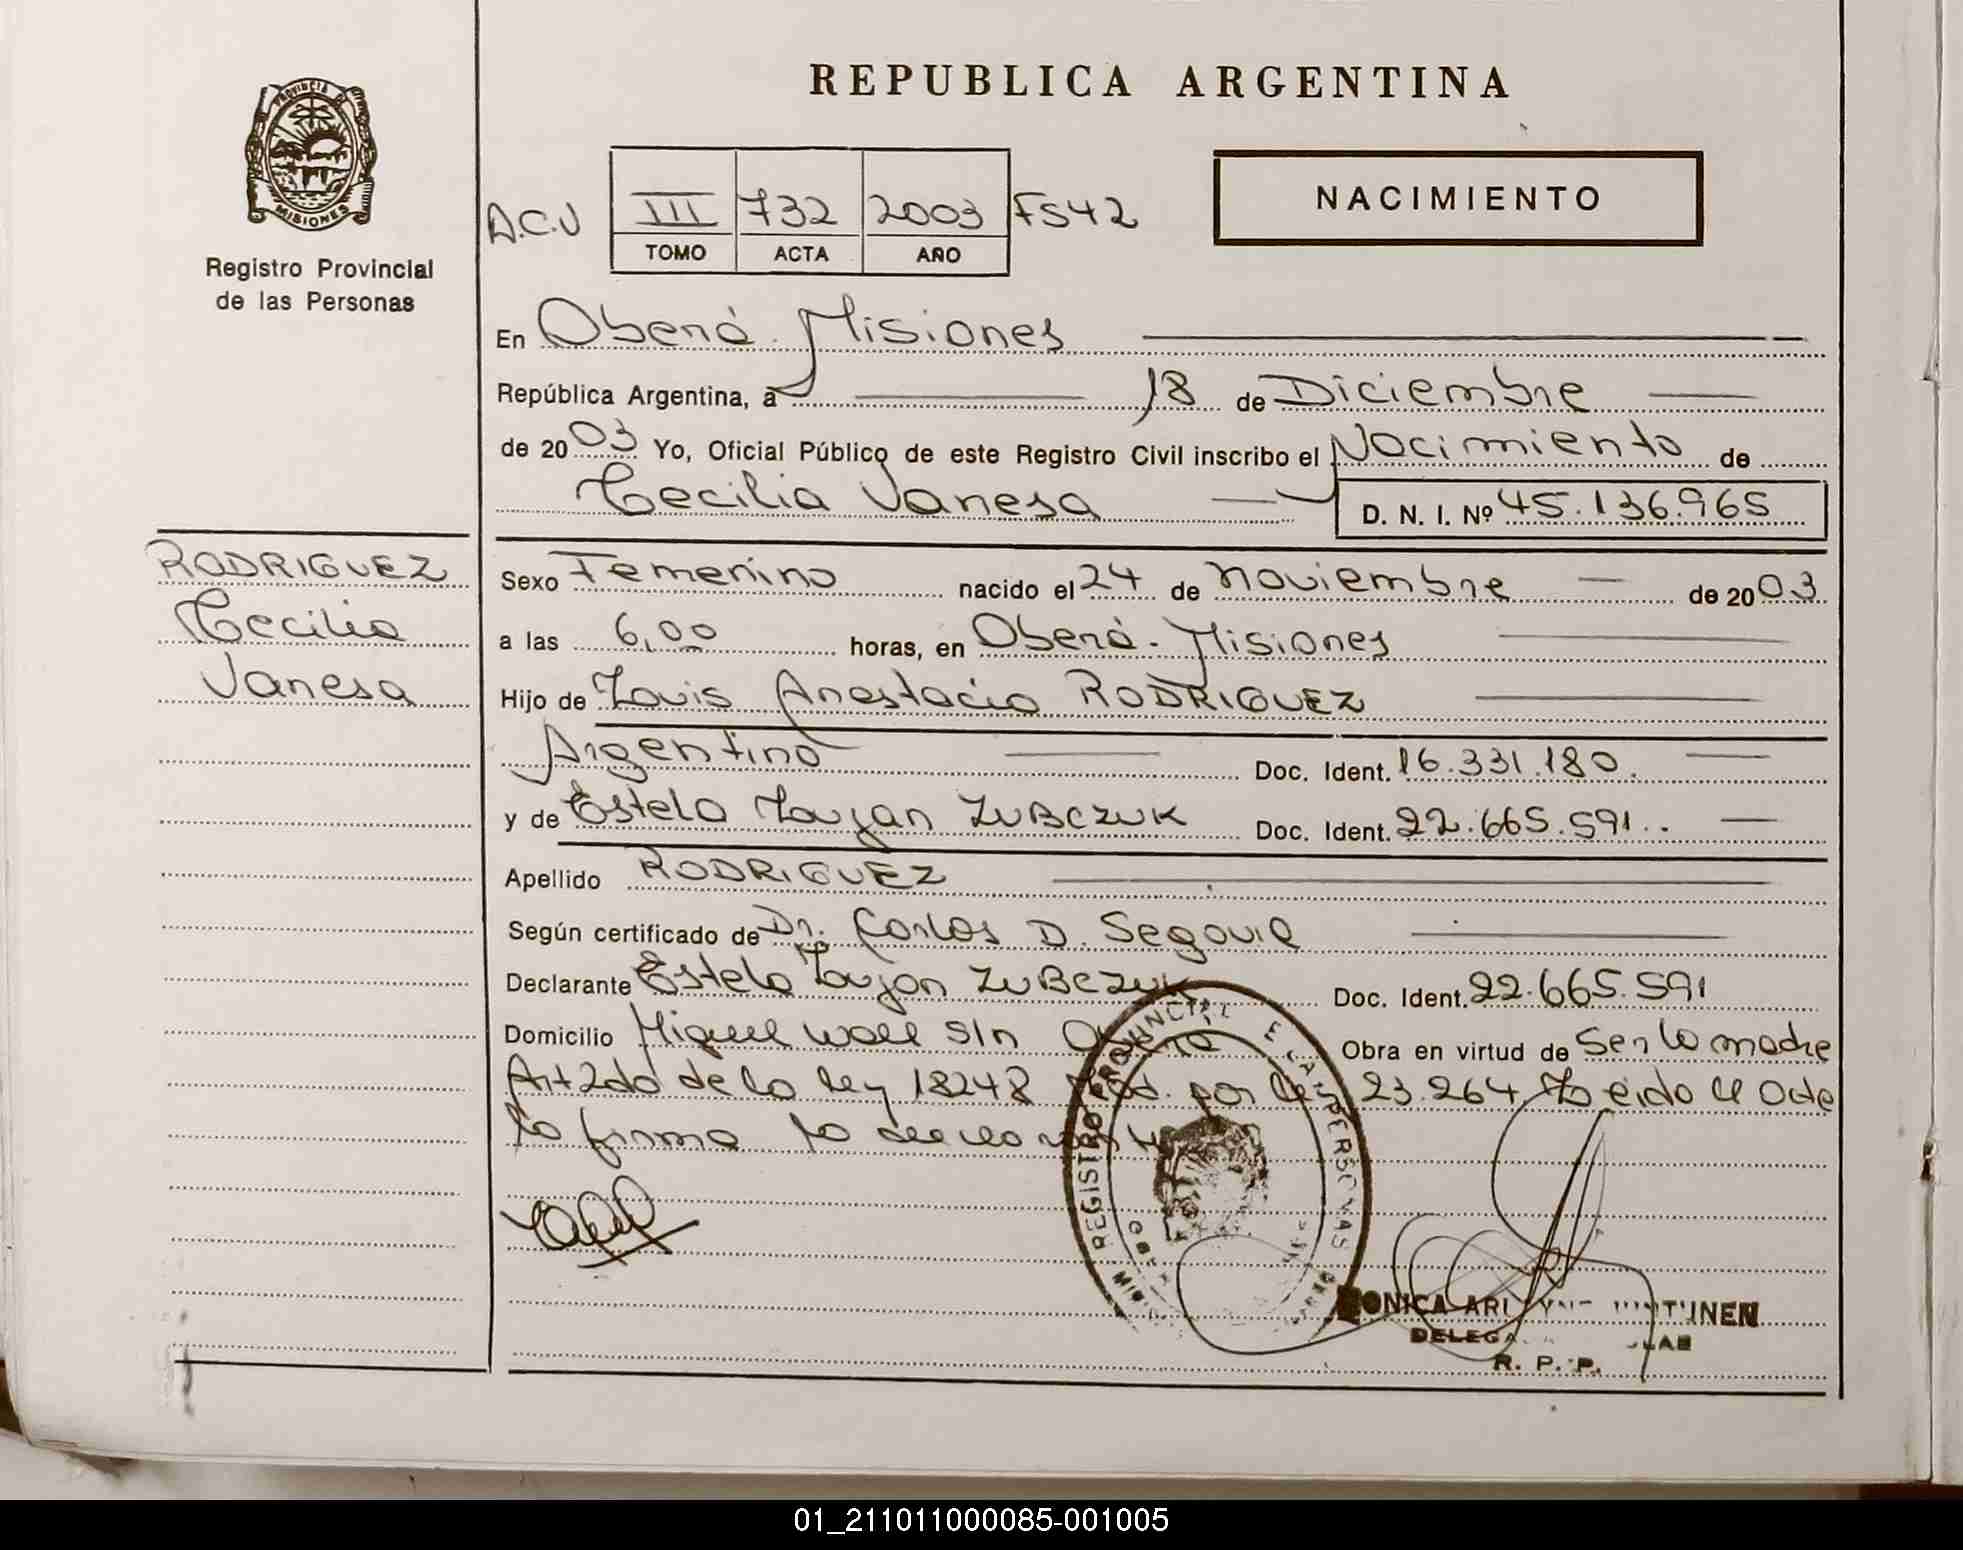 REPUBLICA ARGENTINA
PROVINCIA DE MISIONES
Registro Provincial
de las Personas
A.C.U III 732 2003 FS42
TOMO ACTA AÑO
NACIMIENTO
En Oberá - Misiones
República Argentina, a 18 de Diciembre
de 2003 Yo, Oficial Público de este Registro Civil inscribo el Nacimiento de
Cecilia Vanesa D. N. I. Nº 45.136.965
RODRIGUEZ
Cecilia
Vanesa
Sexo Femenino nacido el 24 de noviembre de 2003
a las 6,00 horas, en Oberá - Misiones
Hijo de Luis Anastacio RODRIGUEZ
Argentino Doc. Ident. 16.331.180.
y de Estela Lujan ZUBCZUK Doc. Ident. 22.665.591..
Apellido RODRIGUEZ
Según certificado de Dr. Carlos D. Segovia
Declarante Estela Lujan ZUBCZUK Doc. Ident. 22.665.591
Domicilio Miguel Wall s/n Oberá Obra en virtud de Ser la madre
Art 2do de la ley 18248 Mod. por ley 23.264 Leido el acta
la firma la declarante
REGISTRO PROVINCIAL DE LAS PERSONAS
DELEGA
R. P. P.
01_211011000085-001005